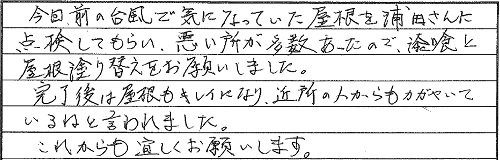 今回、前の台風で気になっていた屋根を浦田さんに
点検してもらい、悪い所が多数あったので、漆喰と
屋根塗り替えをお願いしました。
完了後は屋根もキレイになり、近所の人からもカガやいて
いるねと言われました。
これからも宜しくお願いします。